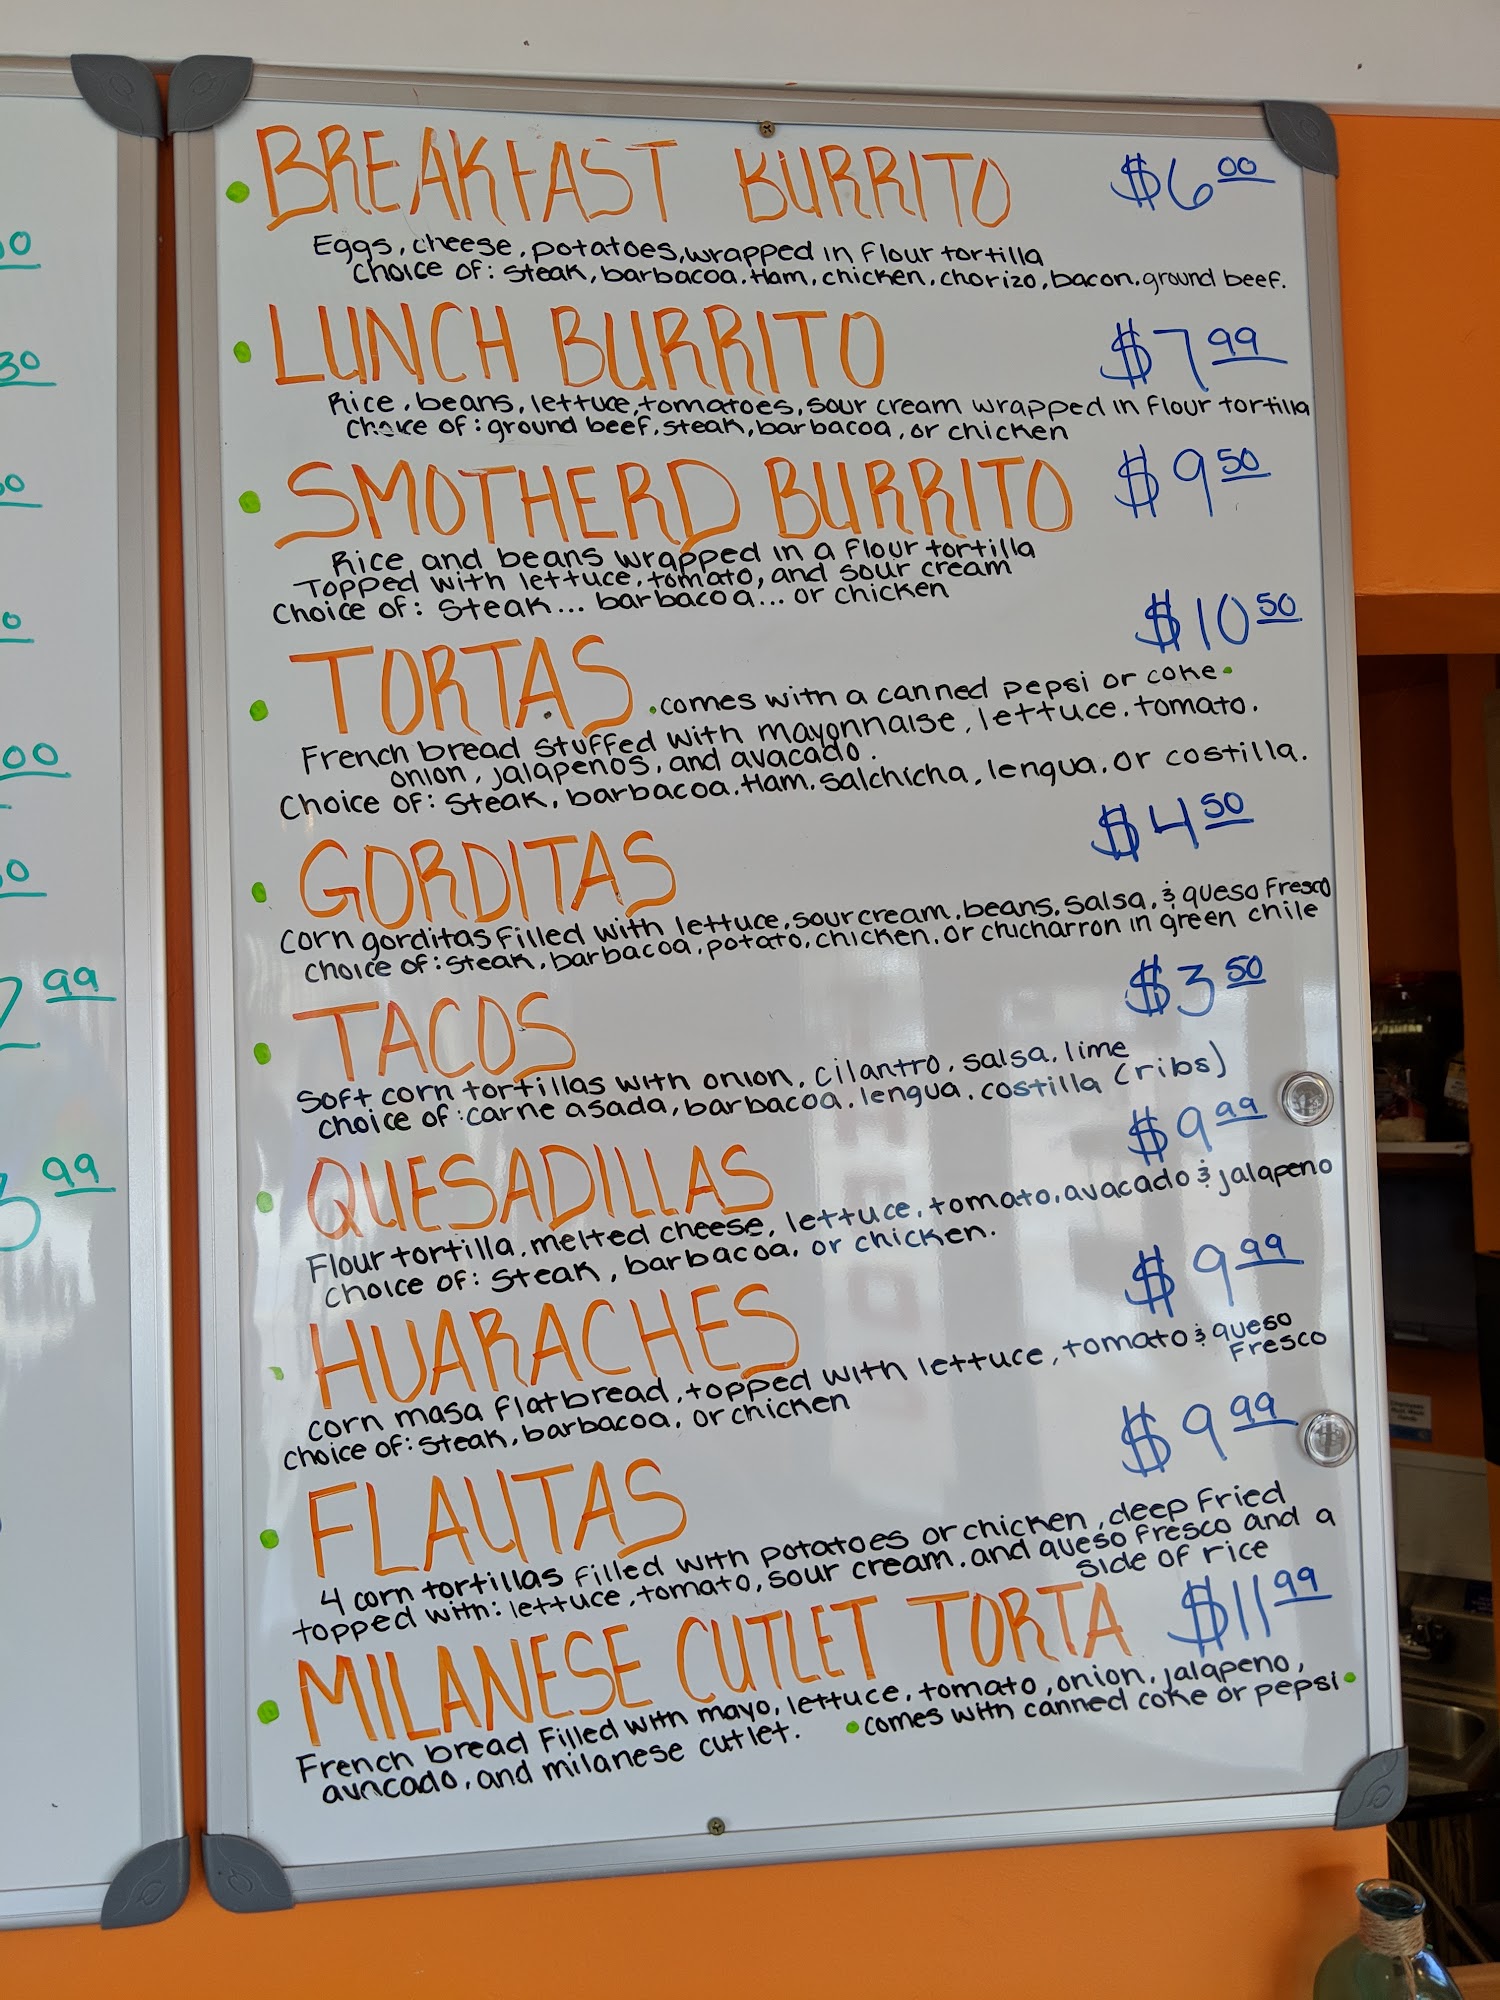 BREAKFAST BURRITO $6.00
Eggs, cheese, potatoes, wrapped in flour tortilla
Choice of: steak, barbacoa, Ham, chicken, chorizo, bacon, ground beef.
LUNCH BURRITO $7.99
Rice, beans, lettuce, tomatoes, sour cream wrapped in flour tortilla
choice of: ground beef, steak, barbacoa, or chicken
SMOTHERD BURRITO $9.50
Rice and beans wrapped in a flour tortilla
Topped with lettuce, tomato, and sour cream
Choice of: Steak... barbacoa... or chicken
$10.50
TORTAS •comes with a canned pepsi or coke•
French bread stuffed with mayonnaise, lettuce, tomato,
onion, jalapenos, and avacado.
Choice of: Steak, barbacoa, Ham, salchicha, lengua, or costilla.
GORDITAS $4.50
corn gorditas filled with lettuce, sour cream, beans, salsa, & queso fresco
choice of: steak, barbacoa, potato, chicken, or chicharron in green chile
TACOS $3.50
Soft corn tortillas with onion, cilantro, salsa, lime
choice of: carne asada, barbacoa, lengua, costilla (ribs)
QUESADILLAS $9.99
Flour tortilla, melted cheese, lettuce, tomato, avacado & jalapeno
choice of: Steak, barbacoa, or chicken.
HUARACHES $9.99
corn masa flatbread, topped with lettuce, tomato & queso
fresco
choice of: steak, barbacoa, or chicken
FLAUTAS $9.99
4 corn tortillas filled with potatoes or chicken, deep fried
topped with: lettuce, tomato, sour cream, and queso fresco and a
side of rice
MILANESE CUTLET TORTA $11.99
French bread filled with mayo, lettuce, tomato, onion, jalapeno,
avacado, and milanese cutlet. •comes with canned coke or pepsi•
30
00
99
99